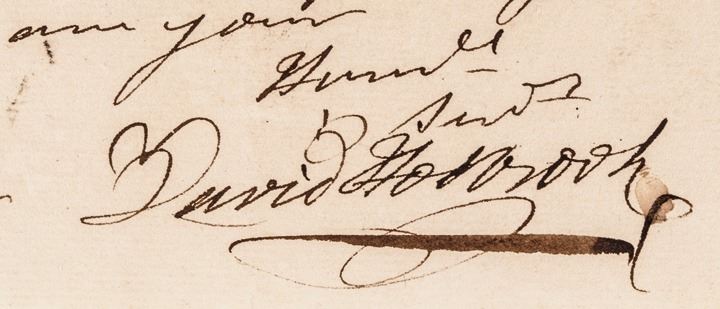 am your
Humble
Servt
David Holbrook